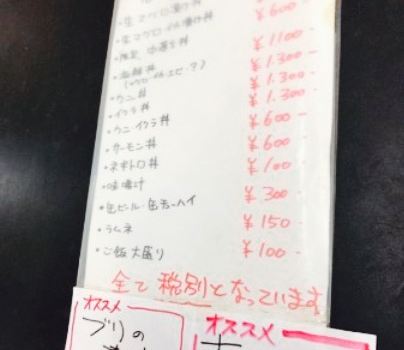 ・生マグロ漬け丼
・生マグロ・イカ漬け丼 ¥600-
・限定 海鮮丼 ¥1100-
・海鮮丼 ¥1.300-
(マグロ・イカ・エビ・?) ¥1.300-
・ウニ丼 ¥1.300-
・イクラ丼 ¥600-
・ウニ・イクラ丼 ¥600-
・サーモン丼 ¥100-
・ネギトロ丼 ¥300-
・味噌汁 ¥150-
・缶ビール・缶チューハイ ¥100-
・ラムネ
・ご飯大盛り
全て税別となっています
オススメ
ブリの
オススメ